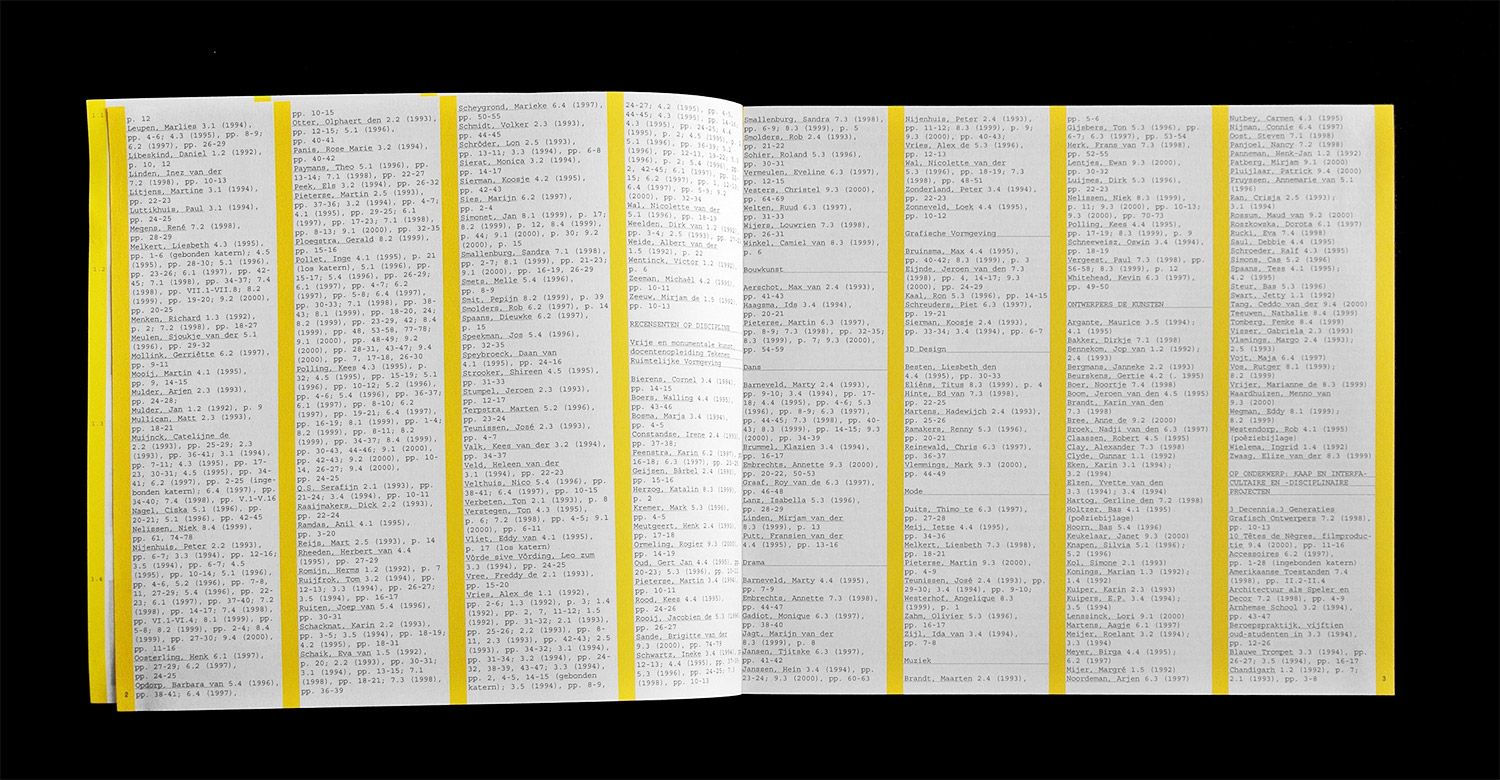 1.1
1.2
1.3
3.4
p. 12
Leupen, Marlies 3.1 (1994),
pp. 4-6; 4.3 (1995), pp. 8-9;
6.2 (1997), pp. 26-29
Libeskind, Daniel 1.2 (1992),
p. 10, 12
Linden, Inez van der
7.2 (1998), pp. 10-13
Litjens, Martine 3.1 (1994),
pp. 22-23
Luttikhuis, Paul 3.1 (1994),
pp. 24-25
Megens, René 7.2 (1998),
pp. 28-29
Melkert, Liesbeth 4.3 (1995),
pp. 1-6 (gebonden katern); 4.5
(1995), pp. 28-30; 5.1 (1996),
pp. 23-26; 6.1 (1997), pp. 42-
45; 7.1 (1998), pp. 34-37; 7.4
(1998), pp. VII.1-VII.8; 8.2
(1999), pp. 19-20; 9.2 (2000),
pp. 20-25
Menken, Richard 1.3 (1992),
p. 2; 7.2 (1998), pp. 18-27
Meulen, Sjoukje van der 5.1
(1996), pp. 29-32
Mollink, Gerriëtte 6.2 (1997),
pp. 9-11
Mooij, Martin 4.1 (1995),
pp. 9, 14-15
Mulder, Arjen 2.3 (1993),
pp. 24-28;
Mulder, Jan 1.2 (1992), p. 9
Mullican, Matt 2.3 (1993),
pp. 18-21
Muijnck, Catelijne de
2.2 (1993), pp. 25-29; 2.3
(1993), pp. 36-41; 3.1 (1994),
pp. 7-11; 4.3 (1995), pp. 17-
23, 30-31; 4.5 (1995), pp. 34-
41; 6.2 (1997), pp. 2-25 (inge-
bonden katern); 6.4 (1997), pp.
34-40; 7.4 (1998), pp. V.1-V.16
Nagel, Ciska 5.1 (1996), pp.
20-21; 5.1 (1996), pp. 42-45
Nelissen, Niek 8.4 (1999),
pp. 61, 74-78
Nijenhuis, Peter 2.2 (1993),
pp. 6-7; 3.3 (1994), pp. 12-16;
3.5 (1994), pp. 6-7; 4.5
(1995), pp. 10-14; 5.1 (1996),
pp. 4-6, 5.2 (1996), pp. 7-8,
11, 27-29; 5.4 (1996), pp. 22-
23; 6.1 (1997), pp. 37-40; 7.2
(1998), pp. 14-17; 7.4 (1998),
pp. VI.1-VI.4; 8.1 (1999), pp.
5-8; 8.2 (1999), pp. 2-4; 8.4
(1999), pp. 27-30; 9.4 (2000),
pp. 11-16
Oosterling, Henk 6.1 (1997),
pp. 27-29; 6.2 (1997),
pp. 24-25
Opdorp, Barbara van 5.4 (1996),
pp. 38-41; 6.4 (1997),
2
pp. 10-15
Otter, Olphaert den 2.2 (1993),
pp. 12-15; 5.1 (1996),
pp. 40-41
Panis, Rose Marie 3.2 (1994),
pp. 40-42
Paymans, Theo 5.1 (1996), pp.
13-14; 7.1 (1998), pp. 22-27
Peek, Els 3.2 (1994), pp. 26-32
Pieterse, Martin 2.5 (1993),
pp. 37-36; 3.2 (1994), pp. 4-7;
4.1 (1995), pp. 29-25; 6.1
(1997), pp. 17-23; 7.1 (1998),
pp. 8-13; 9.1 (2000), pp. 32-35
Ploegstra, Gerald 8.2 (1999),
pp. 15-16
Pollet, Inge 4.1 (1995), p. 21
(los katern), 5.1 (1996), pp.
15-17; 5.4 (1996), pp. 26-29;
6.1 (1997), pp. 4-7; 6.2
(1997), pp. 5-8; 6.4 (1997),
pp. 30-33; 7.1 (1998), pp. 38-
43; 8.1 (1999), pp. 18-20, 24;
8.2 (1999), pp. 23-29, 42; 8.4
(1999), pp. 48, 53-58, 77-78;
9.1 (2000), pp. 48-49; 9.2
(2000), pp. 28-31, 43-47; 9.4
(2000), pp. 7, 17-18, 26-30
Polling, Kees 4.3 (1995), p.
32; 4.5 (1995), pp. 15-19; 5.1
(1996), pp. 10-12; 5.2 (1996),
pp. 4-6; 5.4 (1996), pp. 36-37;
6.1 (1997), pp. 8-10; 6.2
(1997), pp. 19-21; 6.4 (1997),
pp. 16-19; 8.1 (1999), pp. 1-4;
8.2 (1999), pp. 8-11; 8.2
(1999), pp. 34-37; 8.4 (1999),
pp. 30-43, 44-46; 9.1 (2000),
pp. 42-43; 9.2 (2000), pp. 10-
14, 26-27; 9.4 (2000),
pp. 24-25
Q.S. Serafijn 2.1 (1993), pp.
21-24; 3.4 (1994), pp. 10-11
Raaijmakers, Dick 2.2 (1993),
pp. 22-24
Ramdas, Anil 4.1 (1995),
pp. 3-20
Reijs, Mart 2.5 (1993), p. 14
Rheeden, Herbert van 4.4
(1995), pp. 27-29
Romijn, Herms 1.2 (1992), p. 7
Ruijfrok, Tom 3.2 (1994), pp.
12-13; 3.3 (1994), pp. 26-27;
3.5 (1994), pp. 16-17
Ruiten, Joep van 5.4 (1996),
pp. 30-31
Schacknat, Karin 2.2 (1993),
pp. 3-5; 3.5 (1994), pp. 18-19;
4.2 (1995), pp. 18-31
Schaik, Eva van 1.5 (1992),
p. 20; 2.2 (1993), pp. 30-31;
3.1 (1994), pp. 13-15; 7.1
(1998), pp. 18-21; 7.3 (1998),
pp. 36-39
Scheygrond, Marieke 6.4 (1997),
pp. 50-55
Schmidt, Volker 2.3 (1993),
pp. 44-45
Schröder, Lon 2.5 (1993),
pp. 13-11; 3.3 (1994), pp. 6-8
Sierat, Monica 3.2 (1994),
pp. 14-17
Sierman, Koosje 4.2 (1995),
pp. 42-43
Sies, Marijn 6.2 (1997),
pp. 2-4
Simonet, Jan 8.1 (1999), p. 17;
8.2 (1999), p. 12, 8.4 (1999),
p. 44; 9.1 (2000), p. 30; 9.2
(2000), p. 15
Smallenburg, Sandra 7.1 (1998),
pp. 2-7; 8.1 (1999), pp. 21-23;
9.1 (2000), pp. 16-19, 26-29
Smets, Melle 5.4 (1996),
pp. 8-9
Smit, Pepijn 8.2 (1999), p. 39
Smolders, Rob 6.2 (1997), p. 14
Spaans, Dieuwke 6.2 (1997),
p. 15
Speekman, Jos 5.4 (1996),
pp. 32-35
Speybroeck, Daan van
4.1 (1995), pp. 24-16
Strooker, Shireen 4.5 (1995),
pp. 31-33
Stumpel, Jeroen 2.3 (1993),
pp. 12-17
Terpstra, Marten 5.2 (1996),
pp. 23-24
Teunissen, José 2.3 (1993),
pp. 4-7
Valk, Kees van der 3.2 (1994),
pp. 34-37
Veld, Heleen van der
3.1 (1994), pp. 22-23
Velthuis, Nico 5.4 (1996), pp.
38-41; 6.4 (1997), pp. 10-15
Verbeten, Ton 2.1 (1993), p. 8
Verstegen, Ton 4.3 (1995),
p. 6; 7.2 (1998), pp. 4-5; 9.1
(2000), pp. 6-11
Vliet, Eddy van 4.1 (1995),
p. 17 (los katern)
Vörde sive Vörding, Leo zum
3.3 (1994), pp. 24-25
Vree, Freddy de 2.1 (1993),
pp. 15-20
Vries, Alex de 1.1 (1992),
pp. 2-6; 1.3 (1992), p. 3; 1.4
(1992), pp. 2, 7, 11-12; 1.5
(1992), pp. 31-32; 2.1 (1993),
pp. 25-26; 2.2 (1993), pp. 8-
11, 2.3 (1993), pp. 42-43; 2.5
(1993), pp. 34-32; 3.1 (1994),
pp. 31-34; 3.2 (1994), pp. 24-
32, 38-39, 43-47; 3.3 (1994),
pp. 2, 4-5, 14-15 (gebonden
katern); 3.5 (1994), pp. 8-9,
24-27; 4.2 (1995), pp. 4-5,
44-45; 4.3 (1995), pp.
4.3 (1995), pp. 24-25; 4.4
(1995), p. 2; 4.5 (1995),
5.1 (1996), pp. 36-39; 5.2
(1996), pp. 12-13, 19-22;
(1996), p. 2; 5.4 (1996),
2, 42-45; 6.1 (1997), pp.
15; 6.2 (1997), pp. 12-13;
6.4 (1997), pp. 5-9; 9.2
(2000), pp. 32-34
Wal, Nicolette van der
5.1 (1996), pp. 18-19
Weelden, Dirk van 1.2 (1992),
pp. 3-4; 2.5 (1993), pp.
Weide, Albert van der
1.5 (1992), p. 22
Wentinck, Victor 1.2 (1992),
p. 6
Zeeman, Michaël 4.2 (1995),
pp. 10-11
Zeeuw, Mirjam de 1.5 (1992),
pp. 10-13
RECENSENTEN OP DISCIPLINE
Vrije en monumentale kunst,
docentenopleiding Tekenen
Ruimtelijke Vormgeving
Bierens, Cornel 3.4 (1994),
pp. 14-15
Boers, Walling 4.4 (1995),
pp. 43-46
Bosma, Marja 3.4 (1994),
pp. 4-5
Constandse, Irene 2.4 (1993),
pp. 37-38;
Feenstra, Karin 6.2 (1997), pp.
16-18; 6.3 (1997), pp. 21-25
Geijsen, Bärbel 2.4 (1993),
pp. 15-16
Herzog, Katalin 8.3 (1999),
p. 2
Kremer, Mark 5.3 (1996),
pp. 4-5
Meutgeert, Henk 2.4 (1993),
pp. 17-18
Ormeling, Rogier 9.3 (2000),
pp. 14-19
Oud, Gert Jan 4.4 (1995), pp.
20-23; 5.3 (1996), pp. 10-11
Pieterse, Martin 3.4 (1994),
pp. 10-11
Rood, Kees 4.4 (1995),
pp. 24-26
Rooij, Jacobien de 5.3 (1996),
pp. 26-27
Sande, Brigitte van der
9.3 (2000), pp. 74-79
Schwartz, Ineke 3.4 (1994), pp.
12-13; 4.4 (1995), pp. 17-19;
5.3 (1996), pp. 24-25; 7.3
(1998), pp. 10-13
Smallenburg, Sandra 7.3 (1998),
pp. 6-9; 8.3 (1999), p. 5
Smolders, Rob 2.4 (1993),
pp. 21-22
Sohier, Roland 5.3 (1996),
pp. 30-31
Vermeulen, Eveline 6.3 (1997),
pp. 12-15
Vesters, Christel 9.3 (2000),
pp. 64-69
Welten, Ruud 6.3 (1997),
pp. 31-33
Wijers, Louwrien 7.3 (1998),
pp. 26-31
Winkel, Camiel van 8.3 (1999),
p. 6
Bouwkunst
Aerschot, Max van 2.4 (1993),
pp. 41-43
Haagsma, Ids 3.4 (1994),
pp. 20-21
Pieterse, Martin 6.3 (1997),
pp. 8-9; 7.3 (1998), pp. 32-35;
8.3 (1999), p. 7; 9.3 (2000),
pp. 54-59
Dans
Barneveld, Marty 2.4 (1993),
pp. 9-10; 3.4 (1994), pp. 17-
18; 4.4 (1995), pp. 4-6; 5.3
(1996), pp. 8-9; 6.3 (1997),
pp. 44-45; 7.3 (1998), pp. 40-
43; 8.3 (1999), pp. 14-15; 9.3
(2000), pp. 34-39
Brummel, Klazien 3.4 (1994),
pp. 16-17
Embrechts, Annette 9.3 (2000),
pp. 20-22, 50-53
Graaf, Roy van de 6.3 (1997),
pp. 46-48
Lanz, Isabella 5.3 (1996),
pp. 28-29
Linden, Mirjam van der
8.3 (1999), p. 13
Putt, Fransien van der
4.4 (1995), pp. 13-16
Drama
Barneveld, Marty 4.4 (1995),
pp. 7-9
Embrechts, Annette 7.3 (1998),
pp. 44-47
Gadiot, Monique 6.3 (1997),
pp. 38-40
Jagt, Marijn van der
8.3 (1999), p. 8
Jansen, Tjitske 6.3 (1997),
pp. 41-42
Janssen, Hein 3.4 (1994), pp.
23-24; 9.3 (2000), pp. 60-63
Nijenhuis, Peter 2.4 (1993),
pp. 11-12; 8.3 (1999), p. 9;
9.3 (2000), pp. 40-43;
Vries, Alex de 5.3 (1996),
pp. 12-13
Wal, Nicolette van der
5.3 (1996), pp. 18-19; 7.3
(1998), pp. 48-51
Zonderland, Peter 3.4 (1994),
pp. 22-23
Zonneveld, Loek 4.4 (1995),
pp. 10-12
Grafische Vormgeving
Bruinsma, Max 4.4 (1995),
pp. 40-42; 8.3 (1999), p. 3
Eijnde, Jeroen van den 7.3
(1998), pp. 4, 14-17; 9.3
(2000), pp. 24-29
Kaal, Ron 5.3 (1996), pp. 14-15
Schreuders, Piet 6.3 (1997),
pp. 19-21
Sierman, Koosje 2.4 (1993),
pp. 33-34; 3.4 (1994), pp. 6-7
3D Design
Besten, Liesbeth den
4.4 (1995), pp. 30-33
Eliëns, Titus 8.3 (1999), p. 4
Hinte, Ed van 7.3 (1998),
pp. 22-25
Martens, Hadewijch 2.4 (1993),
pp. 25-26
Ramakers, Renny 5.3 (1996),
pp. 20-21
Reinewald, Chris 6.3 (1997),
pp. 36-37
Vlemmings, Mark 9.3 (2000),
pp. 44-49
Mode
Duits, Thimo te 6.3 (1997),
pp. 27-28
Meij, Ietse 4.4 (1995),
pp. 34-36
Melkert, Liesbeth 7.3 (1998),
pp. 18-21
Pieterse, Martin 9.3 (2000),
pp. 4-9
Teunissen, José 2.4 (1993), pp.
29-30; 3.4 (1994), pp. 9-10;
Westerhof, Angelique 8.3
(1999), p. 1
Zahm, Olivier 5.3 (1996),
pp. 16-17
Zijl, Ida van 3.4 (1994),
pp. 7-8
Muziek
Brandt, Maarten 2.4 (1993),
pp. 5-6
Gijsbers, Ton 5.3 (1996), pp.
6-7; 6.3 (1997), pp. 53-54
Herk, Frans van 7.3 (1998),
pp. 52-55
Lentjes, Ewan 9.3 (2000),
pp. 30-32
Luijmes, Dirk 5.3 (1996),
pp. 22-23
Nelissen, Niek 8.3 (1999),
p. 11; 9.3 (2000), pp. 10-13;
9.3 (2000), pp. 70-73
Polling, Kees 4.4 (1995),
pp. 17-19; 8.3 (1999), p. 9
Schneeweisz, Oswin 3.4 (1994),
pp. 18-19
Vergeest, Paul 7.3 (1998), pp.
56-58; 8.3 (1999), p. 12
Whitehead, Kevin 6.3 (1997),
pp. 49-50
ONTWERPERS DE KUNSTEN
Argante, Maurice 3.5 (1994);
4.1 (1995)
Bakker, Dirkje 7.1 (1998)
Bennekom, Jop van 1.2 (1992);
2.4 (1993)
Bergmans, Janneke 2.2 (1993)
Beurskens, Gertie 4.2 (.. 1995)
Boer, Noortje 7.4 (1998)
Boom, Jeroen van den 4.5 (1995)
Brandt, Karin van den
7.3 (1998)
Bree, Anne de 9.2 (2000)
Broek, Nadj van den 6.3 (1997)
Claassen, Robert 4.5 (1995)
Clay, Alexander 7.3 (1998)
Clyde, Gunnar 1.1 (1992)
Eken, Karin 3.1 (1994);
3.2 (1994)
Elzen, Yvette van den
3.3 (1994); 3.4 (1994)
Hartog, Gerline den 7.2 (1998)
Holtzer, Bas 4.1 (1995)
(poëziebijlage)
Noorn, Bas 5.4 (1996)
Keukelaar, Janet 9.3 (2000)
Knapen, Silvia 5.1 (1996);
5.2 (1996)
Kol, Simone 2.1 (1993)
Konings, Marian 1.3 (1992);
1.4 (1992)
Kuiper, Karin 2.3 (1993)
Kuipers, E.P. 3.4 (1994);
3.5 (1994)
Lenssinck, Lori 9.1 (2000)
Martens, Aagje 6.1 (1997)
Meijer, Roelant 3.2 (1994);
3.3 (1994)
Meyer, Birga 4.4 (1995);
6.2 (1997)
Mijer, Margré 1.5 (1992)
Noordeman, Arjen 6.3 (1997)
Nutbey, Carmen 4.3 (1995)
Nijman, Connie 6.4 (1997)
Oost, Steven 7.1 (1998)
Panjoel, Nancy 7.2 (1998)
Panneman, Henk-Jan 1.2 (1992)
Patberg, Mirjam 9.1 (2000)
Pluijlaar, Patrick 9.4 (2000)
Pruyssen, Annemarie van 5.1
(1996)
Ran, Crisja 2.5 (1993);
3.1 (1994)
Rossum, Maud van 9.2 (2000)
Roszkowska, Dorota 6.1 (1997)
Rucki, Eva 7.4 (1998)
Saul, Debbie 4.4 (1995)
Schroeder, Ralf 4.3 (1995)
Simons, Cas 5.2 (1996)
Spaans, Tess 4.1 (1995);
4.2 (1995)
Steur, Bas 5.3 (1996)
Swart, Jetty 1.1 (1992)
Tang, Ceddo van der 9.4 (2000)
Teeuwen, Nathalie 8.4 (1999)
Tomberg, Femke 8.4 (1999)
Visser, Gabriela 2.3 (1993)
Vlamings, Margo 2.4 (1993);
2.5 (1993)
Vojt, Maja 6.4 (1997)
Vos, Rutger 8.1 (1999);
8.2 (1999)
Vrijer, Marianne de 8.3 (1999)
Waardhuizen, Menno van
9.3 (2000)
Wegman, Eddy 8.1 (1999);
8.2 (1999)
Westendorp, Rob 4.1 (1995)
(poëziebijlage)
Wielema, Ingrid 1.4 (1992)
Zwaag, Elize van der 8.3 (1999)
OP ONDERWERP: KAAP EN INTERFA-
CULTAIRE EN -DISCIPLINAIRE
PROJECTEN
3 Decennia.3 Generaties
Grafisch Ontwerpers 7.2 (1998),
pp. 10-13
10 Têtes de Nègres, filmproduc-
tie 9.4 (2000), pp. 11-16
Accessoires 6.2 (1997),
pp. 1-28 (ingebonden katern)
Amerikaanse Toestanden 7.4
(1998), pp. II.2-II.4
Architectuur als Speler en
Decor 7.2 (1998), pp. 4-9
Arnhemse School 3.2 (1994),
pp. 43-47
Beroepspraktijk, vijftien
oud-studenten in 3.3 (1994),
pp. 12-26
Blauwe Trompet 3.3 (1994), pp.
26-27; 3.5 (1994), pp. 16-17
Chandigarh 1.2 (1992), p. 7;
2.1 (1993), pp. 3-8
3